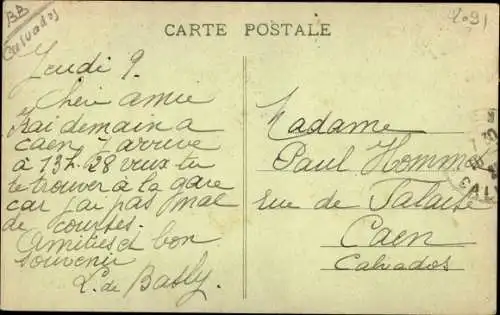 BB
Calvados
CARTE POSTALE
Jeudi 9.
Chère amie
J'irai demain a
caen j'arrive
à 13h.28 veux tu
te trouver à la gare
car j'ai pas mal
de courses.
Amitiés et bon
souvenir
L. de Bailly.
Madame
Paul Homm
rue de Falaise
Caen
Calvados